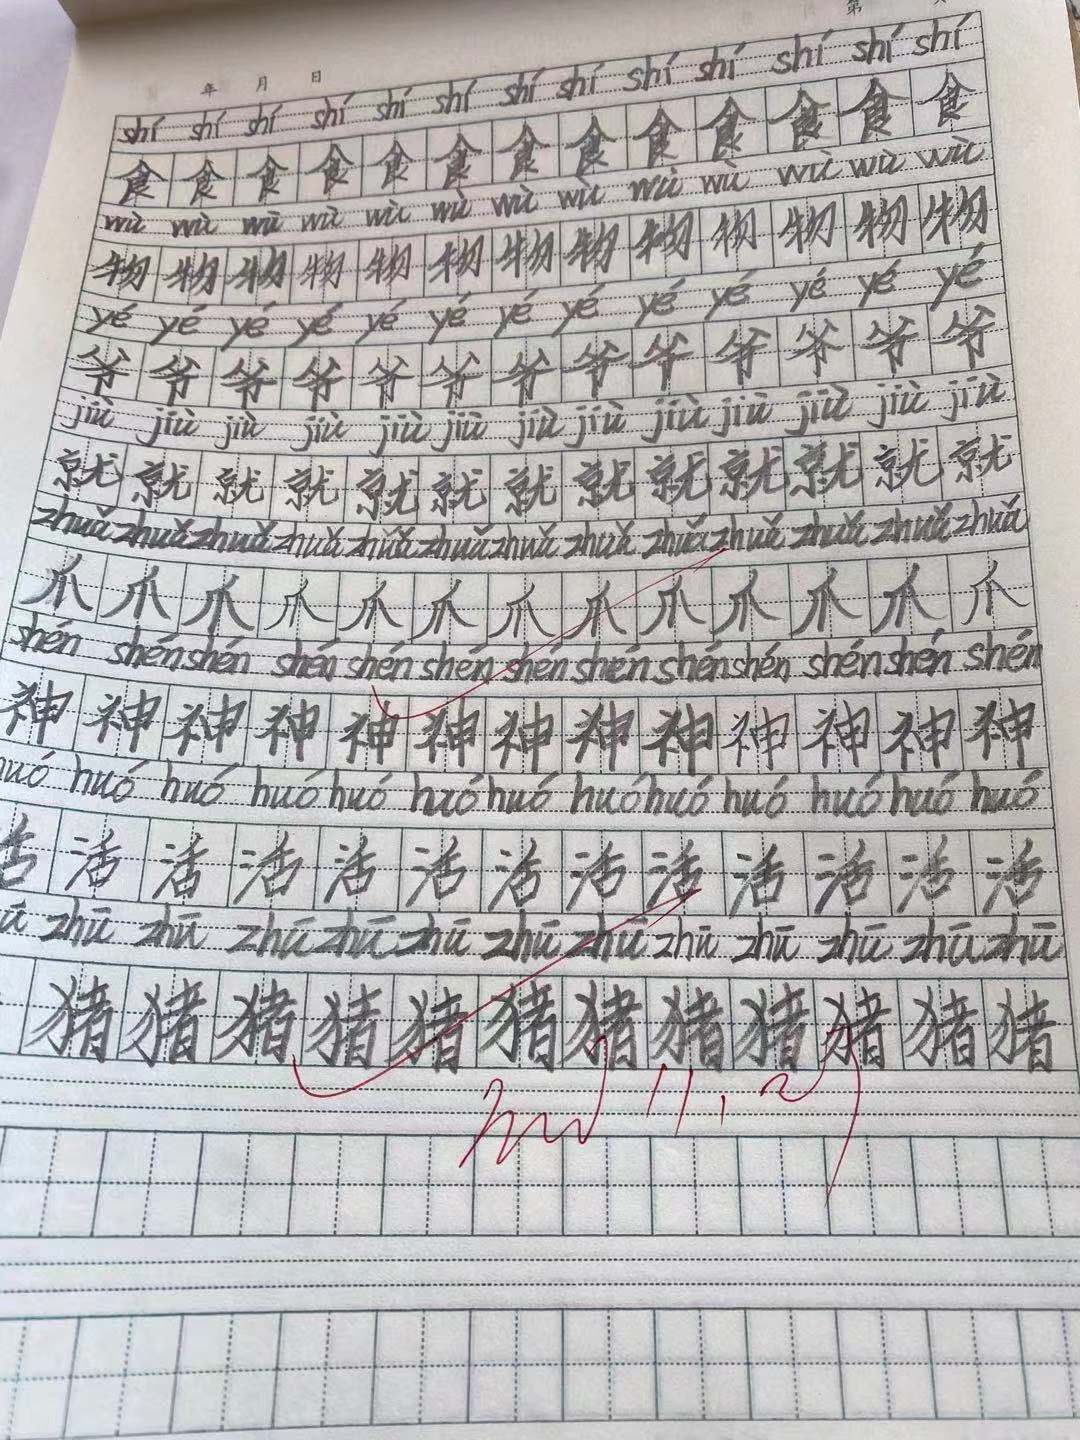 年 月 日 第
shí shí shí shí shí shí shí shí shí shí shí shí shí
食 食 食 食 食 食 食 食 食 食 食 食 食
wù wù wù wù wù wù wù wù wù wù wù wù wù
物 物 物 物 物 物 物 物 物 物 物 物 物
yé yé yé yé yé yé yé yé yé yé yé yé yé
爷 爷 爷 爷 爷 爷 爷 爷 爷 爷 爷 爷 爷
jiù jiù jiù jiù jiù jiù jiù jiù jiù jiù jiù jiù jiù
就 就 就 就 就 就 就 就 就 就 就 就 就
zhuǎ zhuǎ zhuǎ zhuǎ zhuǎ zhuǎ zhuǎ zhuǎ zhuǎ zhuǎ zhuǎ zhuǎ zhuǎ
爪 爪 爪 爪 爪 爪 爪 爪 爪 爪 爪 爪 爪
shén shén shén shén shén shén shén shén shén shén shén shén shén
神 神 神 神 神 神 神 神 神 神 神 神 神
huó huó huó huó huó huó huó huó huó huó huó huó huó
活 活 活 活 活 活 活 活 活 活 活 活 活
zhū zhū zhū zhū zhū zhū zhū zhū zhū zhū zhū zhū
猪 猪 猪 猪 猪 猪 猪 猪 猪 猪 猪 猪
11.29